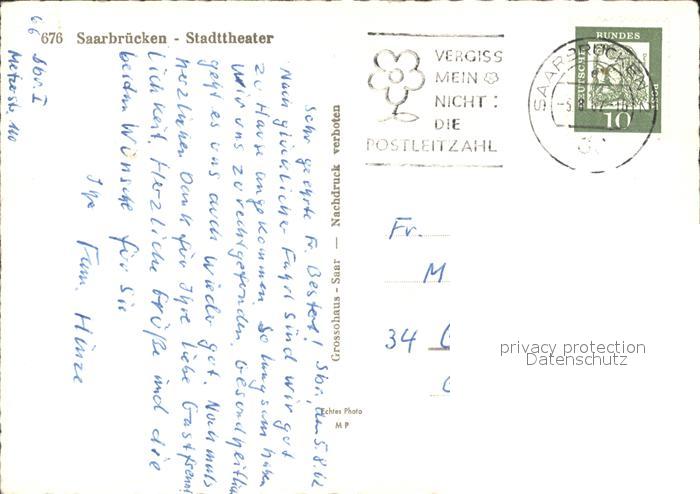 676 Saarbrücken - Stadttheater
66 Sbr. I
Metzerstr. 110
Sbr., den 5.8.62
Sehr geehrte Fr. Bester!
Nach glücklicher Fahrt sind wir gut
zu Hause angekommen. So langsam haben
wir uns zurechtgefunden. Gesundheitlich
geht es uns auch wieder gut. Nochmals
herzlichen Dank für Ihre liebe Gastfreund
lichkeit. Herzliche Grüße und die
besten Wünsche für Sie
Ihre Fam. Hinze
Grossohaus - Saar — Nachdruck verboten
Echtes Photo
M P
VERGISS
MEIN
NICHT:
DIE
POSTLEITZAHL
SAARBRÜCKEN
DEUTSCHE
BUNDES
POST
10
Fr.
M
34 G
privacy protection
Datenschutz